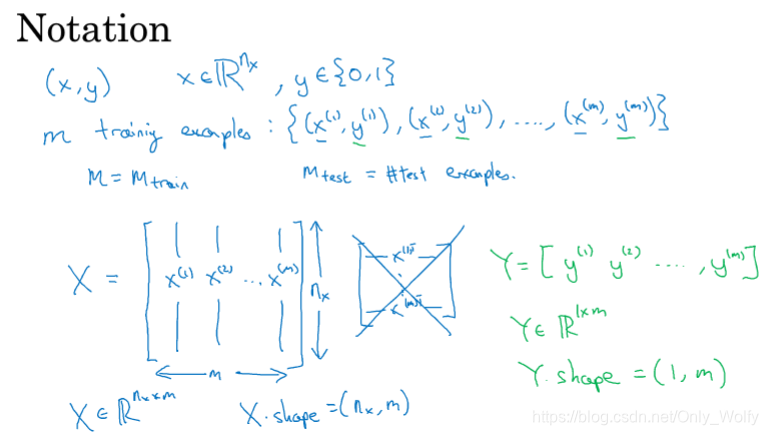 Notation
(x,y)    x∈ℝ^{n_x}, y∈{0,1}
m trainig examples : {(x^{(1)}, y^{(1)}), (x^{(2)}, y^{(2)}), ...., (x^{(m)}, y^{(m)})}
M = M_{train}    M_{test} = #test examples.
X = [ x^{(1)} x^{(2)} ... x^{(m)} ] n_x
x^{(1)T}
x^{(m)T}
m
X ∈ ℝ^{n_x × m}    X.shape = (n_x, m)
Y = [ y^{(1)} y^{(2)} ...., y^{(m)} ]
Y ∈ ℝ^{1×m}
Y.shape = (1, m)
https://blog.csdn.net/Only_Wolfy